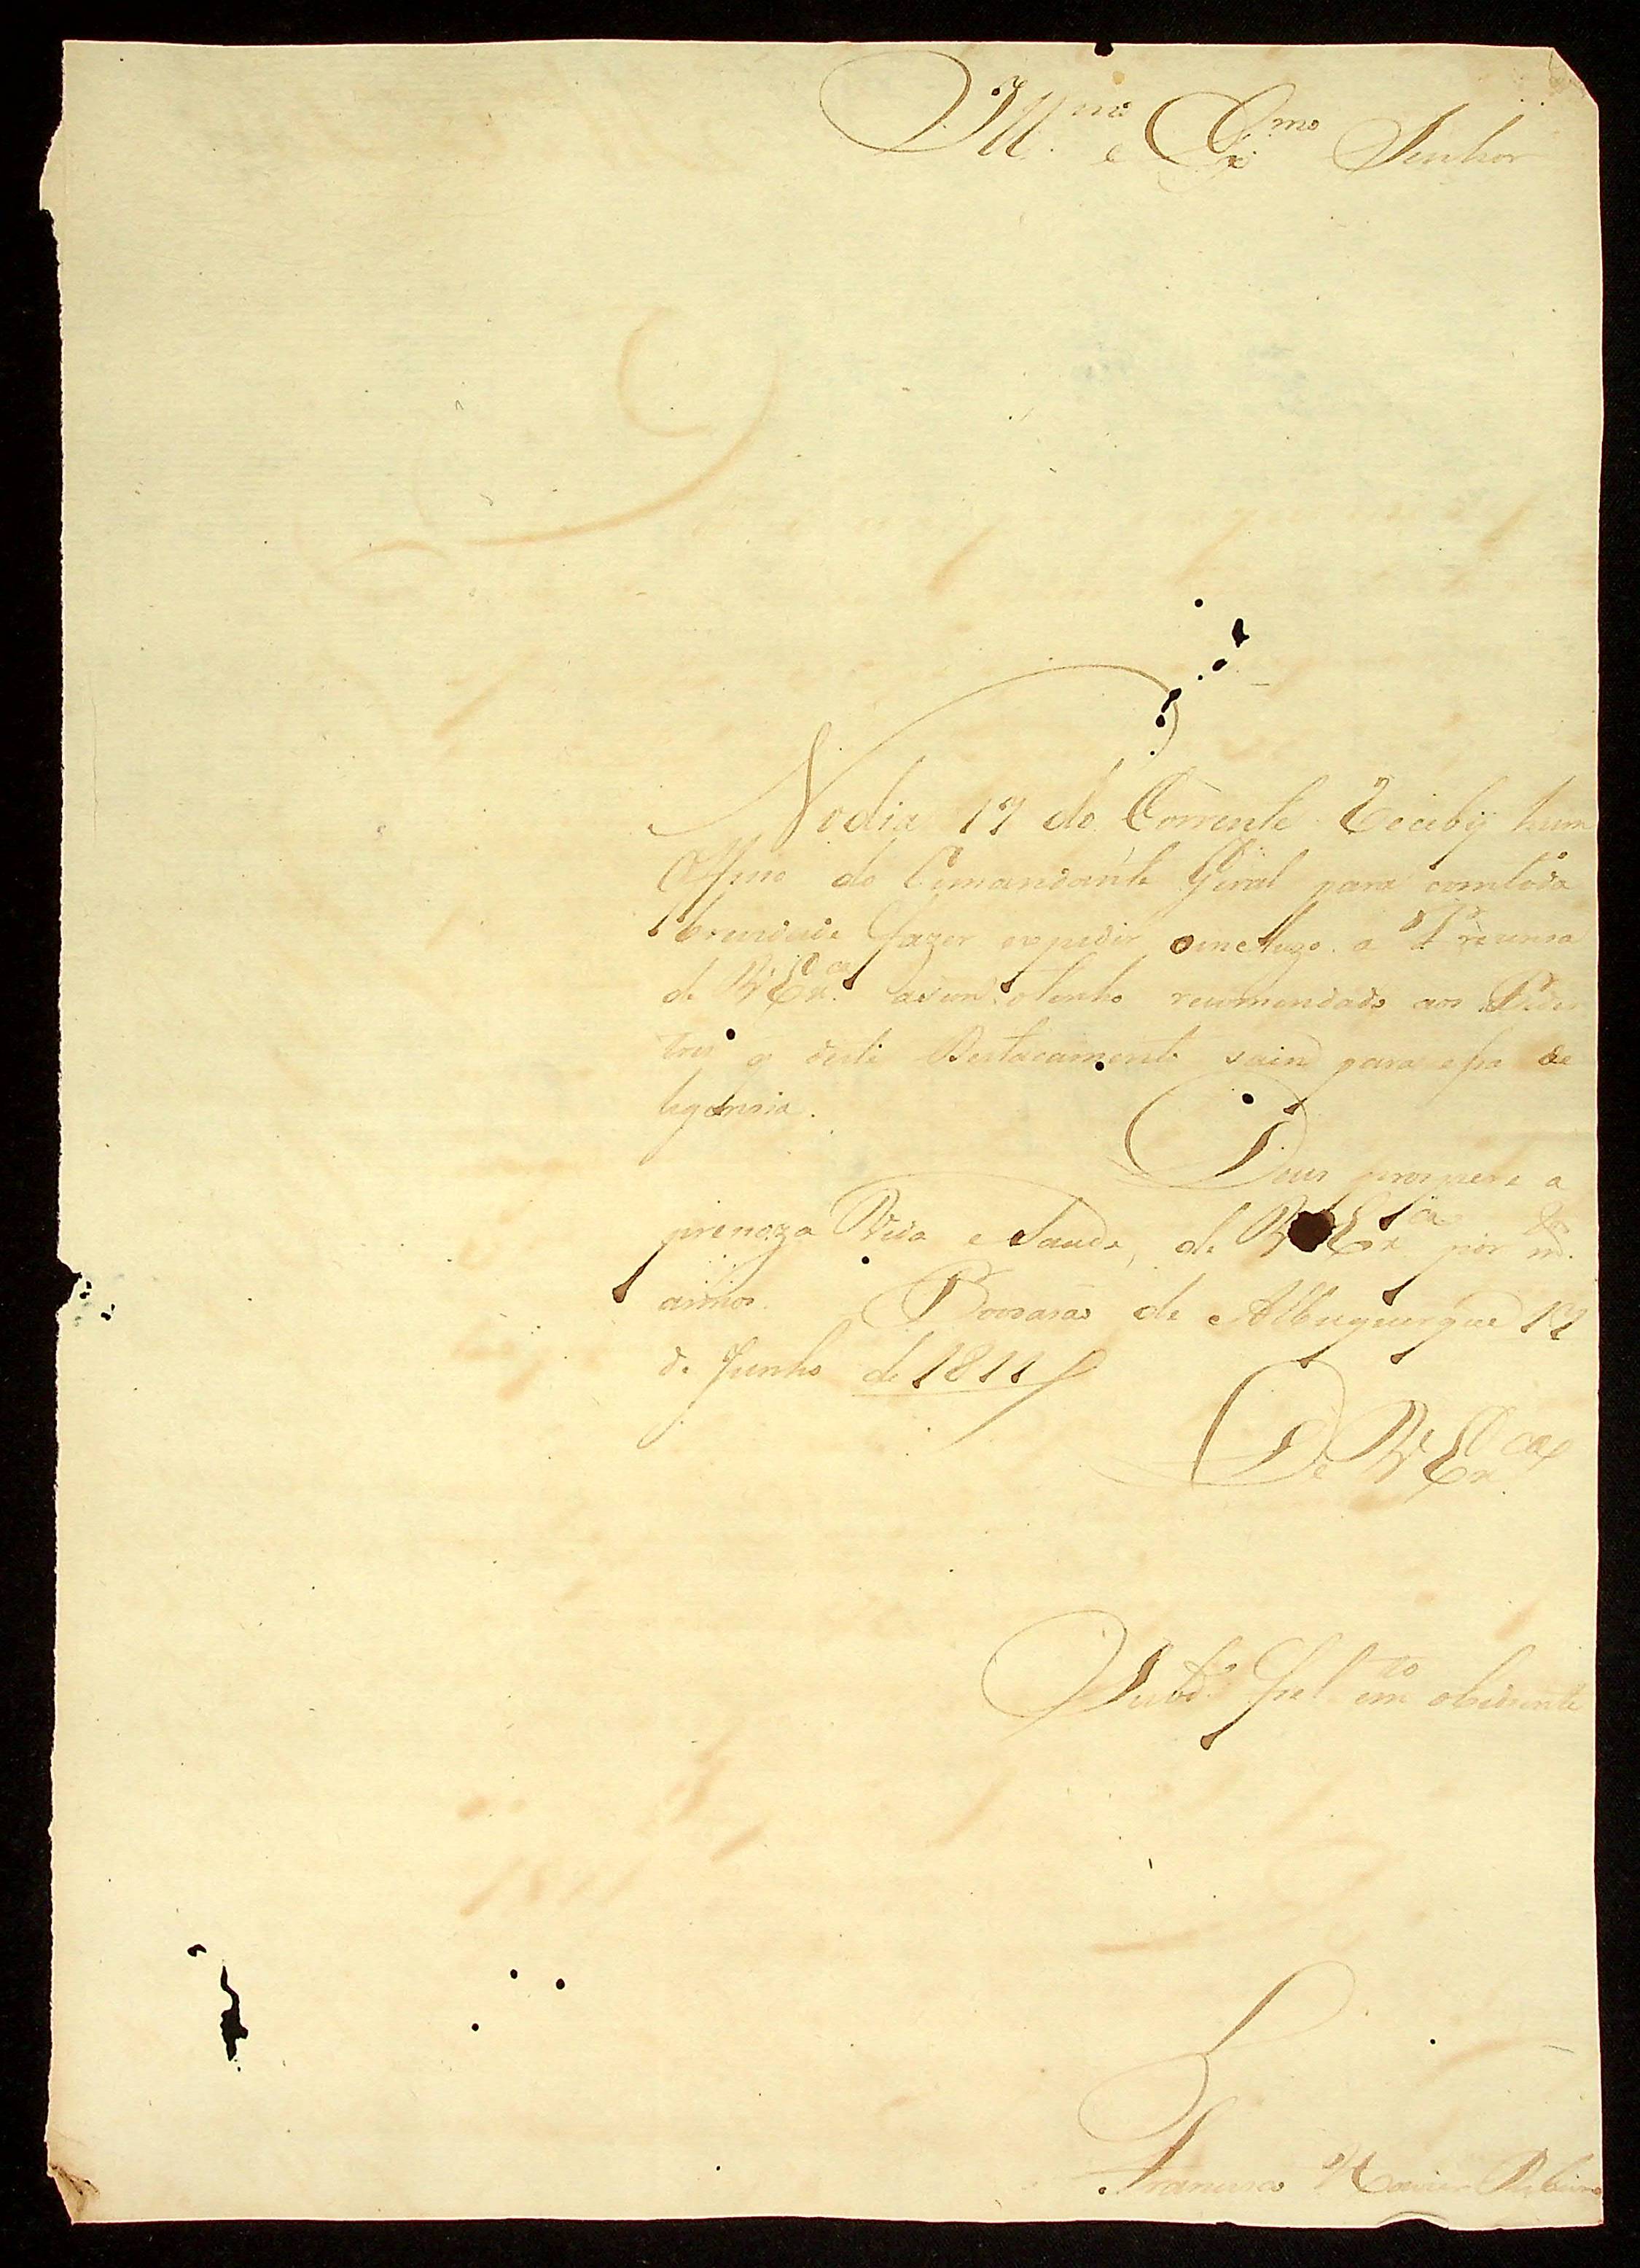 Ill.mo e Ex.mo Senhor
No dia 17 do Corrente Recebÿ hum
Officio do Comandante Geral para com toda
brevidade fazer expedir a
de V Ex.ca asim o tenho recomendado aos Pede
tres q deste Destacamento saem para essa de
ligencia.
Deus prospere a
precioza Vida e Saude, de V Ex.ca por m.s
annos. Povoasaõ de Albuquerque 17
de Junho de 1811
De V Ex.ca
Subd.o fiel em.to obediente
Francisco Xavier Ribeiro